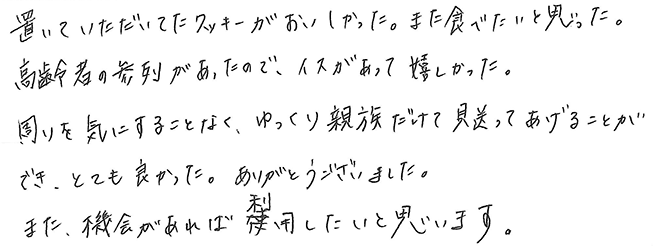 置いていただいてたクッキーがおいしかった。また食べたいと思った。
高齢者の参列があったので、イスがあって嬉しかった。
周りを気にすることなく、ゆっくり親族だけで見送ってあげることが
でき、とても良かった。ありがとうございました。
また、機会があれば利用したいと思います。